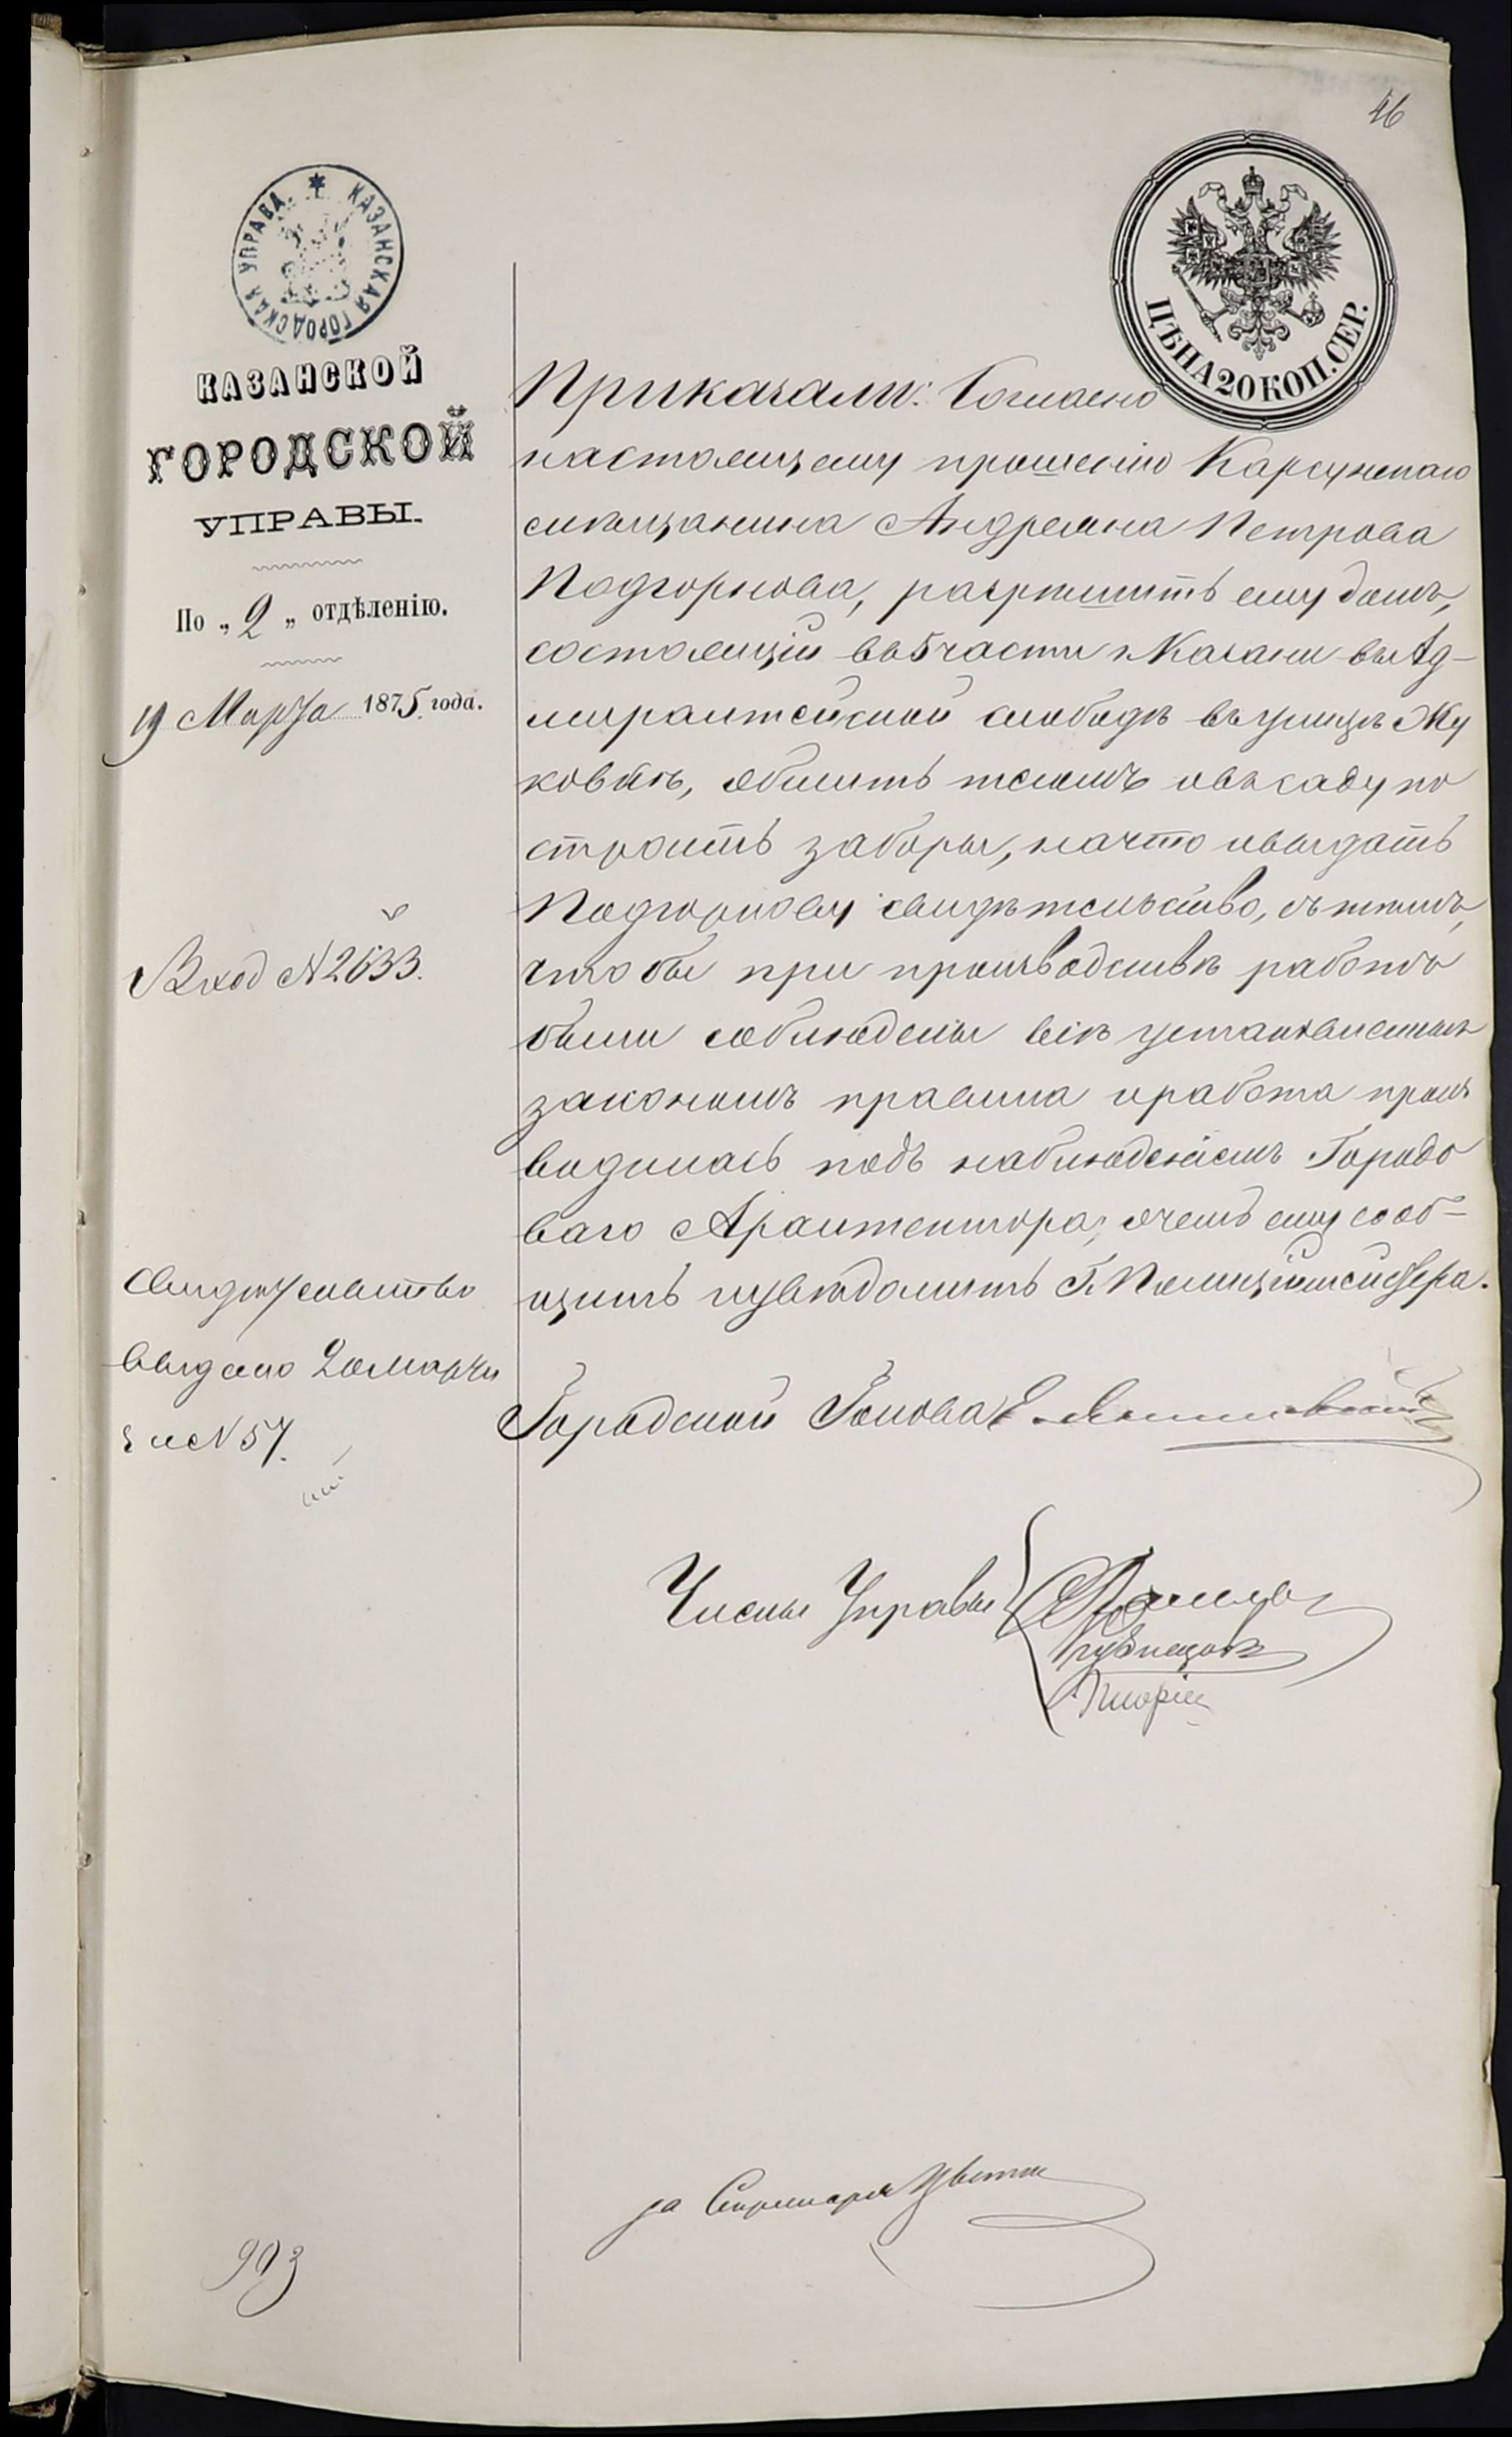 46
КАЗАНСКАЯ ГОРОДСКАЯ УПРАВА
ЦѢНА 20 КОП. СЕР.
КАЗАНСКОЙ
ГОРОДСКОЙ
УПРАВЫ.
По „2„ отдѣленію.
19 Марта 1875 года.
Вход N 2633.
Свидѣтельство
выдано 20 марта
за N 57.
993
Приказали: Согласно
настоящему прошенію Карсунскаго
мѣщанина Андреяна Петрова
Подгорнова, разрѣшить ему домъ,
состоящій въ 5 части г. Казани въ Ад-
миралтейской слободѣ въ улицѣ Жу
ковкѣ, обшить тесомъ и въ саду по
строить заборы, на что и выдать
Подгорнову свидѣтельство, съ тѣмъ,
чтобы при производствѣ работъ
были соблюдены всѣ установленныя
закономъ правила и работа произ
водилась подъ наблюденіемъ Городо
ваго Архитектора, о чемъ ему сооб-
щить и увѣдомить Г. Полиціймейстера.
Городской Голова Е.
Члены Управы
Кузнецовъ
за Секретаря